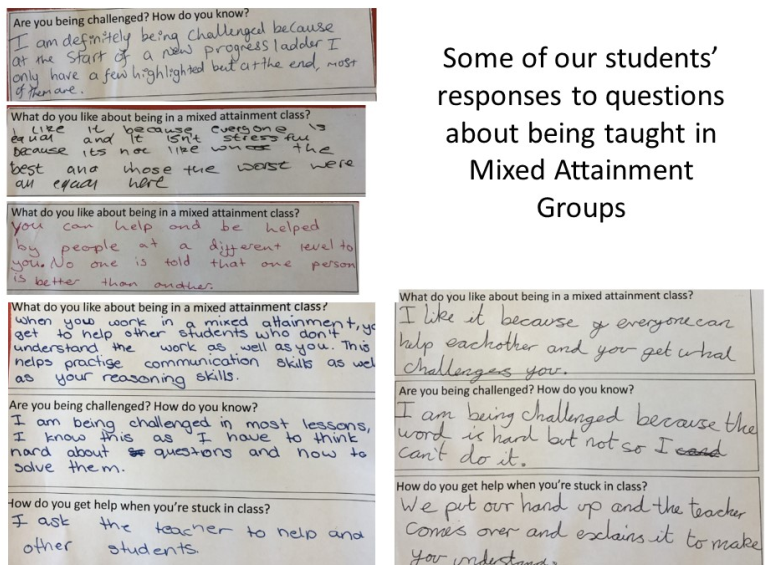 Are you being challenged? How do you know?
I am definitely being challenged because
at the start of a new progress ladder I
only have a few highlighted but at the end, most
of them are.
What do you like about being in a mixed attainment class?
I like it because everyone is
equal and it isn't stressful
because its not like the
best and whose the worst were
all equal here
What do you like about being in a mixed attainment class?
You can help and be helped
by people at a different level to
you. No one is told that one person
is better than another.
What do you like about being in a mixed attainment class?
When you work in a mixed attainment, yo
get to help other students who don't
understand the work as well as you. This
helps practise communication skills as wel
as your reasoning skills.
Are you being challenged? How do you know?
I am being challenged in most lessons,
I know this as I have to think
hard about questions and how to
solve them.
How do you get help when you're stuck in class?
I ask the teacher to help and
other students.
Some of our students'
responses to questions
about being taught in
Mixed Attainment
Groups
What do you like about being in a mixed attainment class?
I like it because everyone can
help eachother and you get what
challenges you.
Are you being challenged? How do you know?
I am being challenged because the
word is hard but not so I
can't do it.
How do you get help when you're stuck in class?
We put our hand up and the teacher
comes over and exclains it to make
you understand.